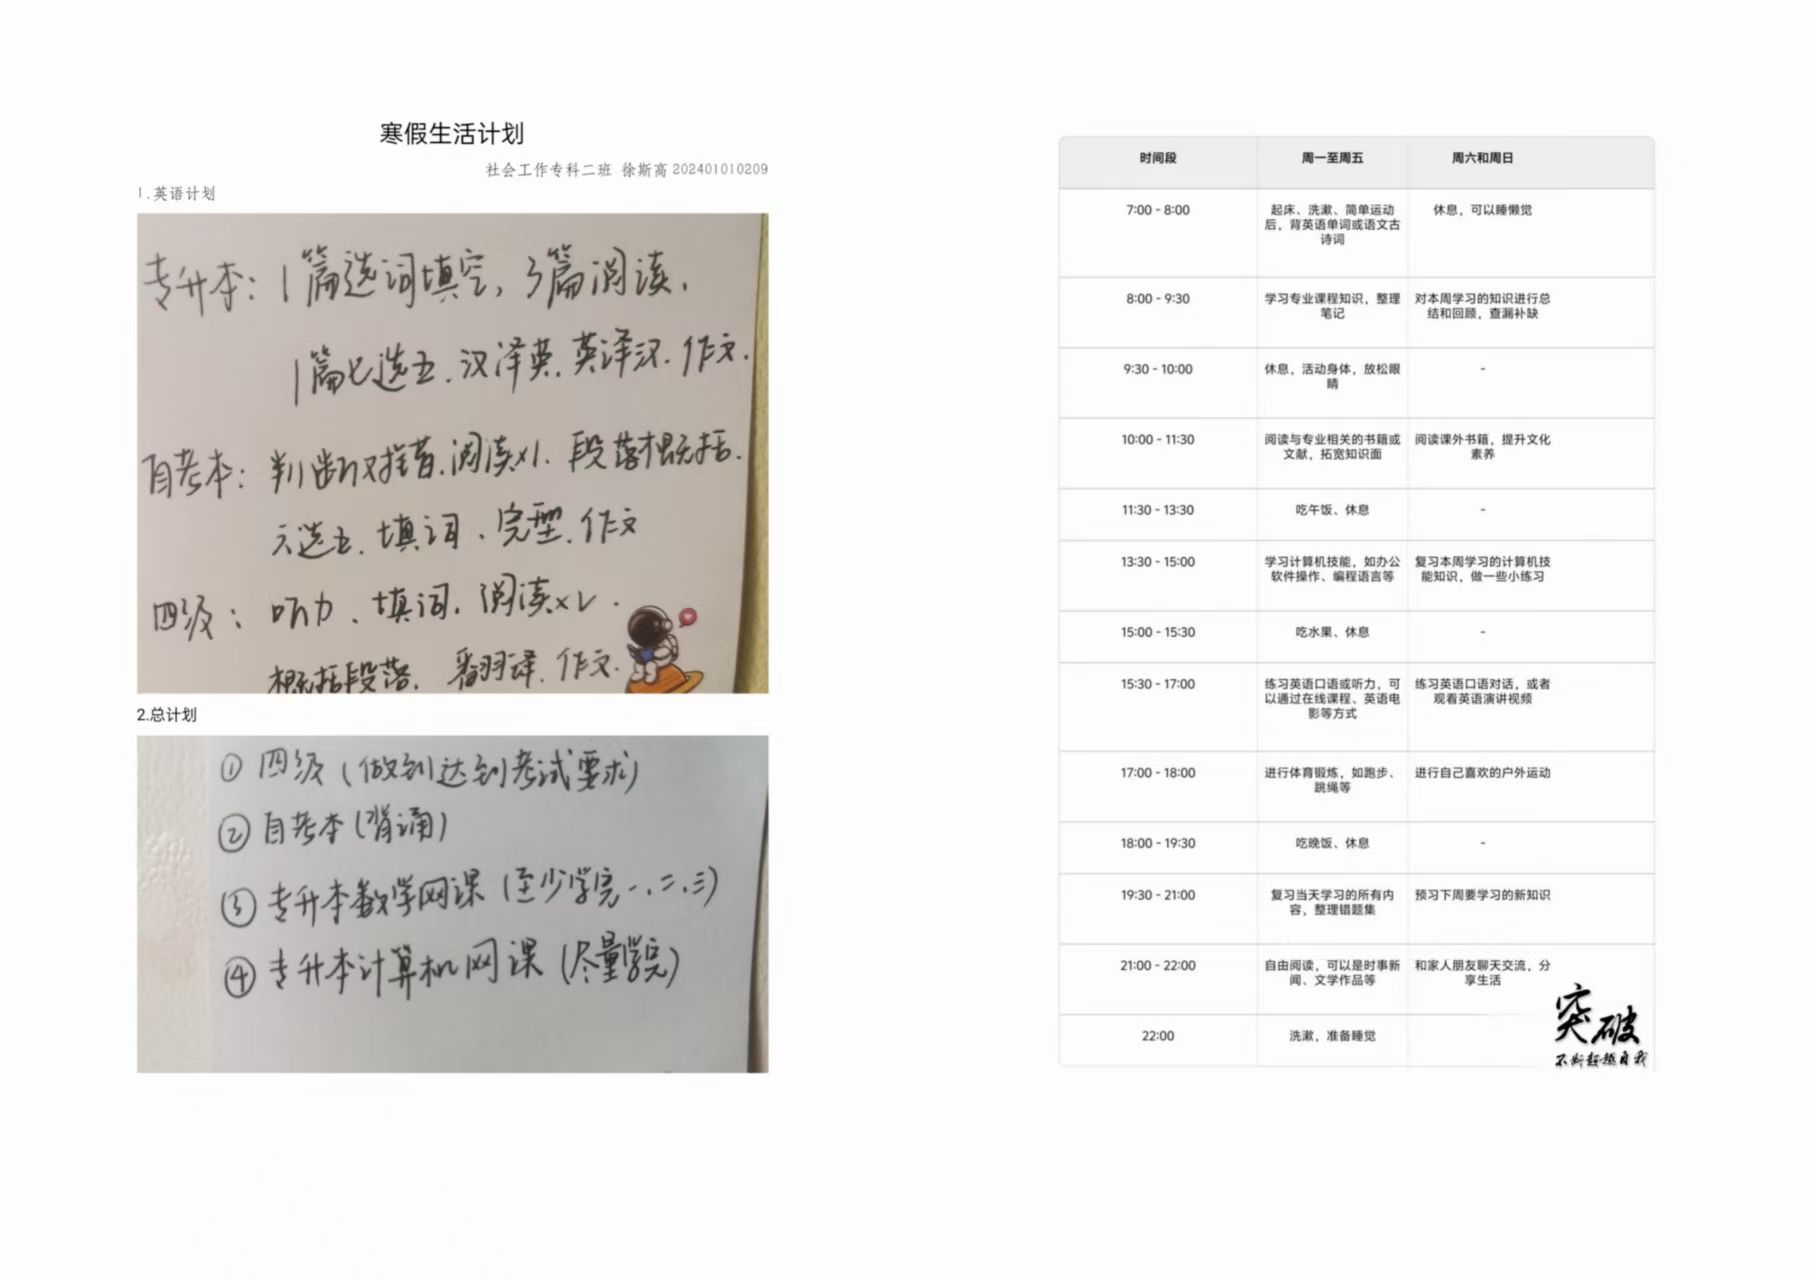 寒假生活计划
社会工作专科二班 徐斯高 202401010209
1.英语计划
专升本：1篇选词填空，3篇阅读，
1篇七选五、汉译英、英译汉、作文.
自考本：判断对错、阅读x1、段落概括.
六选五、填词、完型、作文
四级：听力、填词、阅读x2.
概括段落、翻译、作文.
2.总计划
① 四级（做到达到考试要求）
② 自考本（背诵）
③ 专升本数学网课（至少学完一、二、三）
④ 专升本计算机网课（尽量学完）
时间段 周一至周五 周六和周日
7:00 - 8:00 起床、洗漱、简单运动 休息，可以睡懒觉
后，背英语单词或语文古
诗词
8:00 - 9:30 学习专业课程知识，整理 对本周学习的知识进行总
笔记 结和回顾，查漏补缺
9:30 - 10:00 休息，活动身体，放松眼 -
睛
10:00 - 11:30 阅读与专业相关的书籍或 阅读课外书籍，提升文化
文献，拓宽知识面 素养
11:30 - 13:30 吃午饭、休息 -
13:30 - 15:00 学习计算机技能，如办公 复习本周学习的计算机技
软件操作、编程语言等 能知识，做一些小练习
15:00 - 15:30 吃水果、休息 -
15:30 - 17:00 练习英语口语或听力，可 练习英语口语对话，或者
以通过在线课程、英语电 观看英语演讲视频
影等方式
17:00 - 18:00 进行体育锻炼，如跑步、 进行自己喜欢的户外运动
跳绳等
18:00 - 19:30 吃晚饭、休息 -
19:30 - 21:00 复习当天学习的所有内 预习下周要学习的新知识
容，整理错题集
21:00 - 22:00 自由阅读，可以是时事新 和家人朋友聊天交流，分
闻、文学作品等 享生活
22:00 洗漱，准备睡觉
突破
不断超越自我